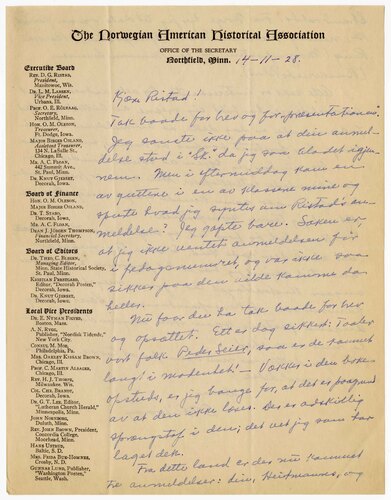 The Norwegian American Historical Association
OFFICE OF THE SECRETARY
Northfield, Minn. 14-11-28.
Executive Board
REV. D. G. RISTAD,
President,
Manitowoc, Wis.
DR. L. M. LARSEN,
Vice President,
Urbana, Ill.
PROF. O. E. RÖLVAAG,
Secretary,
Northfield, Minn.
HON. O. M. OLESON,
Treasurer,
Ft. Dodge, Iowa.
MAJOR BIRGER OSLAND,
Assistant Treasurer,
134 N. LaSalle St.,
Chicago, Ill.
MR. A. C. FLOAN,
442 Summit Ave.,
St. Paul, Minn.
DR. KNUT GJERSET,
Decorah, Iowa.
Board of Finance
HON. O. M. OLESON
MAJOR BIRGER OSLAND,
DR. T. STABO,
Decorah, Iowa.
MR. A. C. FLOAN,
DEAN J. JÖRGEN THOMPSON,
Financial Secretary,
Northfield, Minn.
Board of Editors
DR. THEO. C. BLEGEN,
Managing Editor,
Minn. State Historical Society,
St. Paul, Minn.
KRISTIAN PRESTGARD,
Editor, "Decorah Posten,"
Decorah, Iowa.
DR. KNUT GJERSET,
Decorah, Iowa.
Local Vice Presidents
Boston, Mass.
A. N. RYGG,
Publisher, "Nordisk Tidende,"
New York City.
Philadelphia, Pa.
Chicago, Ill.
PROF. C. MARTIN ALSAGER,
Chicago, Ill.
REV. H. J. THORPE,
Milwaukee, Wis.
Decorah, Iowa.
DR. G. T. LEE, Editor,
"Lutheran Church Herald,"
Minneapolis, Minn.
Duluth, Minn.
REV. JOHN BROWN, President,
Concordia College,
Moorhead, Minn.
Baltic, S. D.
Crosby, N. D.
GUNNAR LUND, Publisher,
"Washington Posten,"
Seattle, Wash.
Kjære Ristad!
Tak baade for brev og for
Jeg sanste ikke paa at den anmel-
delse stod i da jeg saa bladet igjen-
nem. Men i eftermiddag kom en
av guttene i en av klassene mine og
spurte hvad jeg syntes om Ristad's an-
meldelse? Jeg gapte bare. Saken er,
at jeg ikke ventet anmeldelsen før
i og var ikke saa
sikker paa den vilde komme da
heller.
Nu faar du ha tak baade for brev
og opsættet. Ett er dog sikkert: Faaler
vort folk Peder Seier, saa er de kommet
langt i modenhet! — Vækkes i den boken
opsteds, er jeg bange for, at det er paagrund
av at den ikke læses. Der er adskillig
sprængstof i den; det vet jeg som har
laget det.
Fra dette land er der nu kommet
tre anmeldelser: din, Heitmanns, og